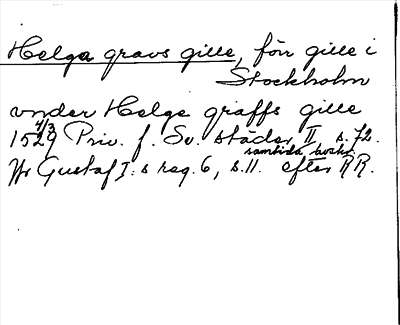 Helga gravs gille, förr gille i
Stockholm
vnder Helge graffs gille
4/3 1529 Priv. f. Sv. städer II s. 72.
samtida avskr.
Gustaf I:s reg. 6, s. 11. efter RR.